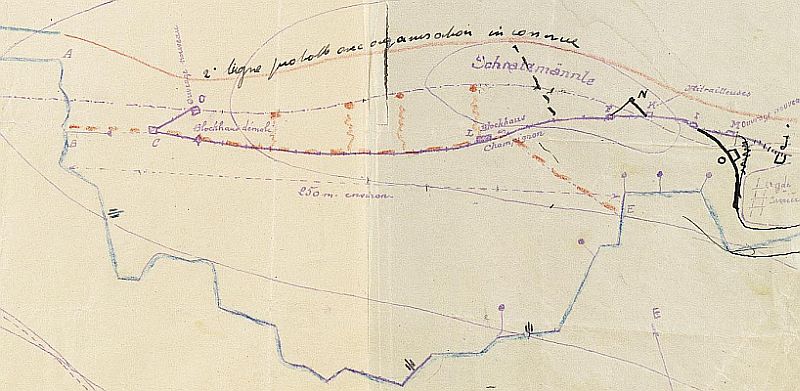 2e ligne probable avec organisation inconnue
Schratzmännle
A
Ouvrage nouveau
O
N
Mitrailleuses
H
M Ouvrage nouveau
j
B
C
Blockhaus démoli
L Blockhaus
Champignon
I
O
250 m. environ
E
E